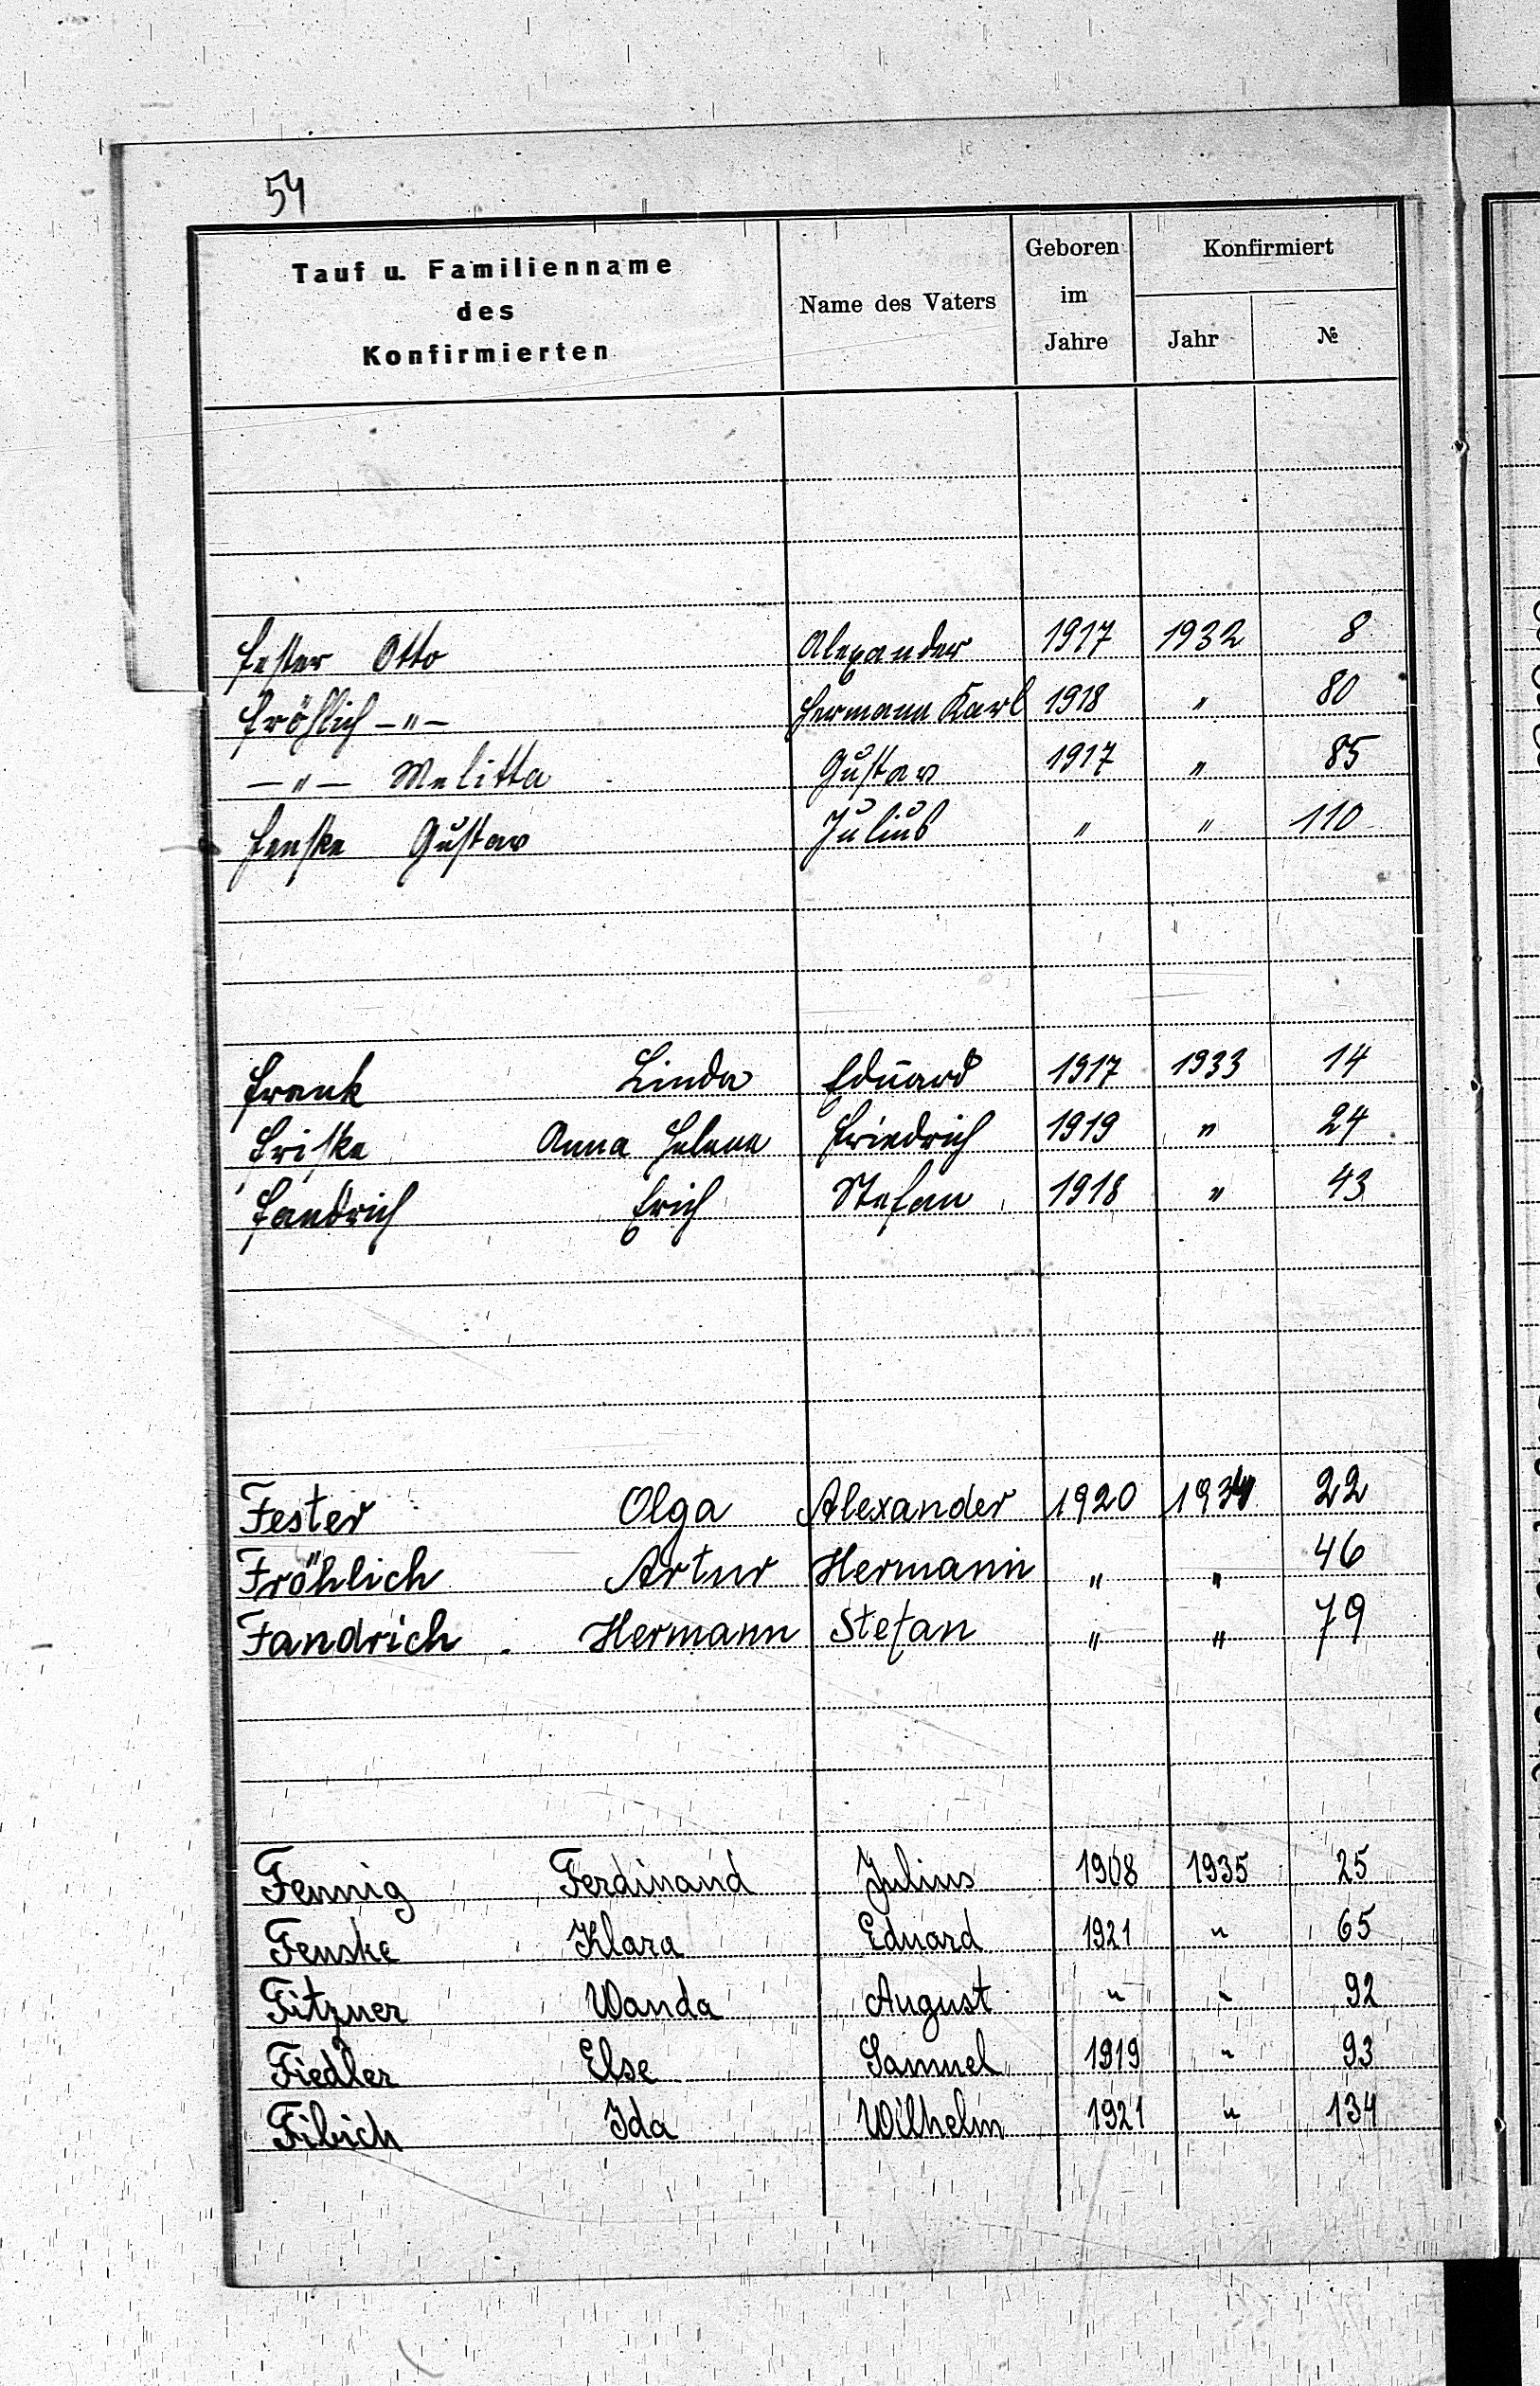 54
Tauf u. Familienname des Konfirmierten | Name des Vaters | Geboren im Jahre | Konfirmiert Jahr | №
Fester Otto | Alexander | 1917 | 1932 | 8
Fröhlich —"— | Hermann Karl | 1918 | " | 80
—"— Melitta | Gustav | 1917 | " | 85
Fenske Gustav | Julius | " | " | 110
Frank Linda | Eduard | 1917 | 1933 | 14
Friske Anna Helene | Friedrich | 1919 | " | 24
Fandrich Erich | Stefan | 1918 | " | 43
Fester Olga | Alexander | 1920 | 1934 | 22
Fröhlich Artur | Hermann | " | " | 46
Fandrich Hermann | Stefan | " | " | 79
Fennig Ferdinand | Julius | 1908 | 1935 | 25
Fenske Klara | Eduard | 1921 | " | 65
Fitzner Wanda | August | " | " | 92
Fiedler Else | Samuel | 1919 | " | 93
Fibich Ida | Wilhelm | 1921 | " | 134